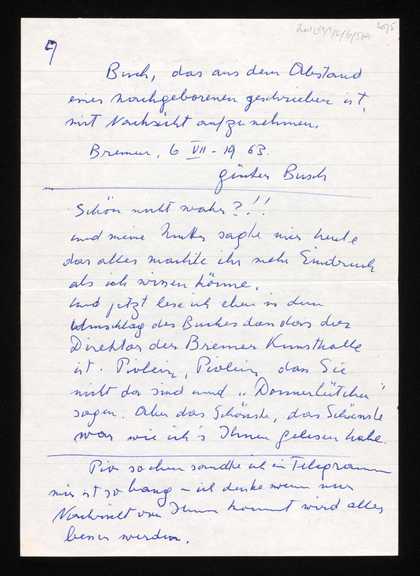 9
Buch, das aus dem Abstand
eines nachgeborenen geschrieben ist,
mit Nachsicht aufzunehmen.
Bremen, 6 VII - 1963.
günter Busch
Schön nicht wahr?!!
und meine Mutter sagte mir heute
das alles machte ihr mehr Eindruck
als ich wissen könne.
und jetzt lese ich eben in dem
Umschlag des Buches dass das der
Direktor der Bremer Kunsthalle
ist. Piolein, Piolein, dass Sie
nicht da sind und „Donnerlütchen"
sagen. Aber das Schönste, das Schönste
war wie ich's Ihnen gelesen habe.
Pio soeben sandte ich ein Telegramm
mir ist so bang - ich denke wenn nur
Nachricht von Ihnen kommt wird alles
besser werden.